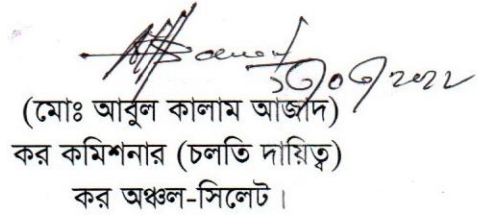 (মোঃ আবুল কালাম আজাদ)
কর কমিশনার (চলতি দায়িত্ব)
কর অঞ্চল-সিলেট।